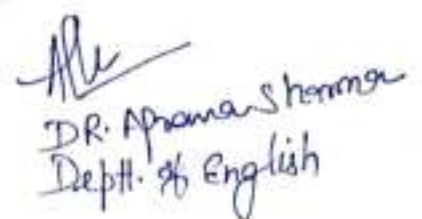 DR. Aprana Sharma
Deptt. of English